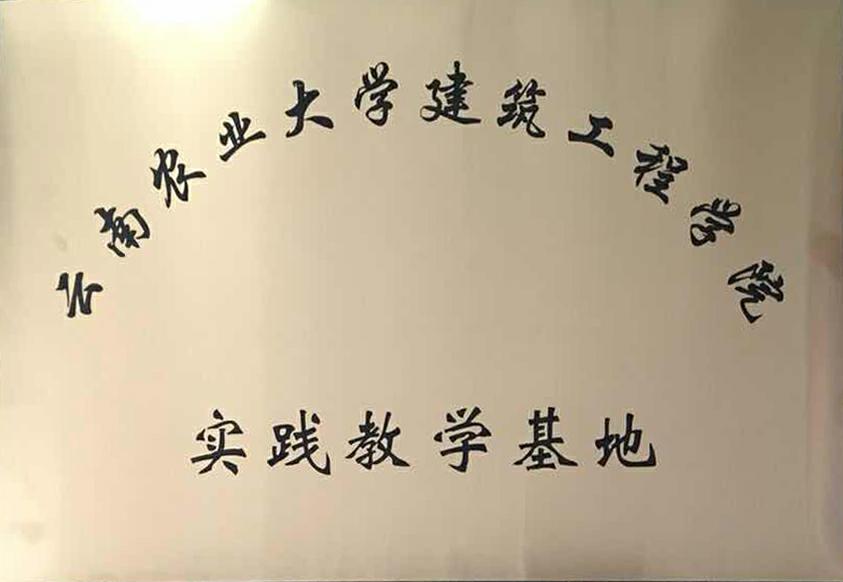 云南农业大学建筑工程学院
实践教学基地